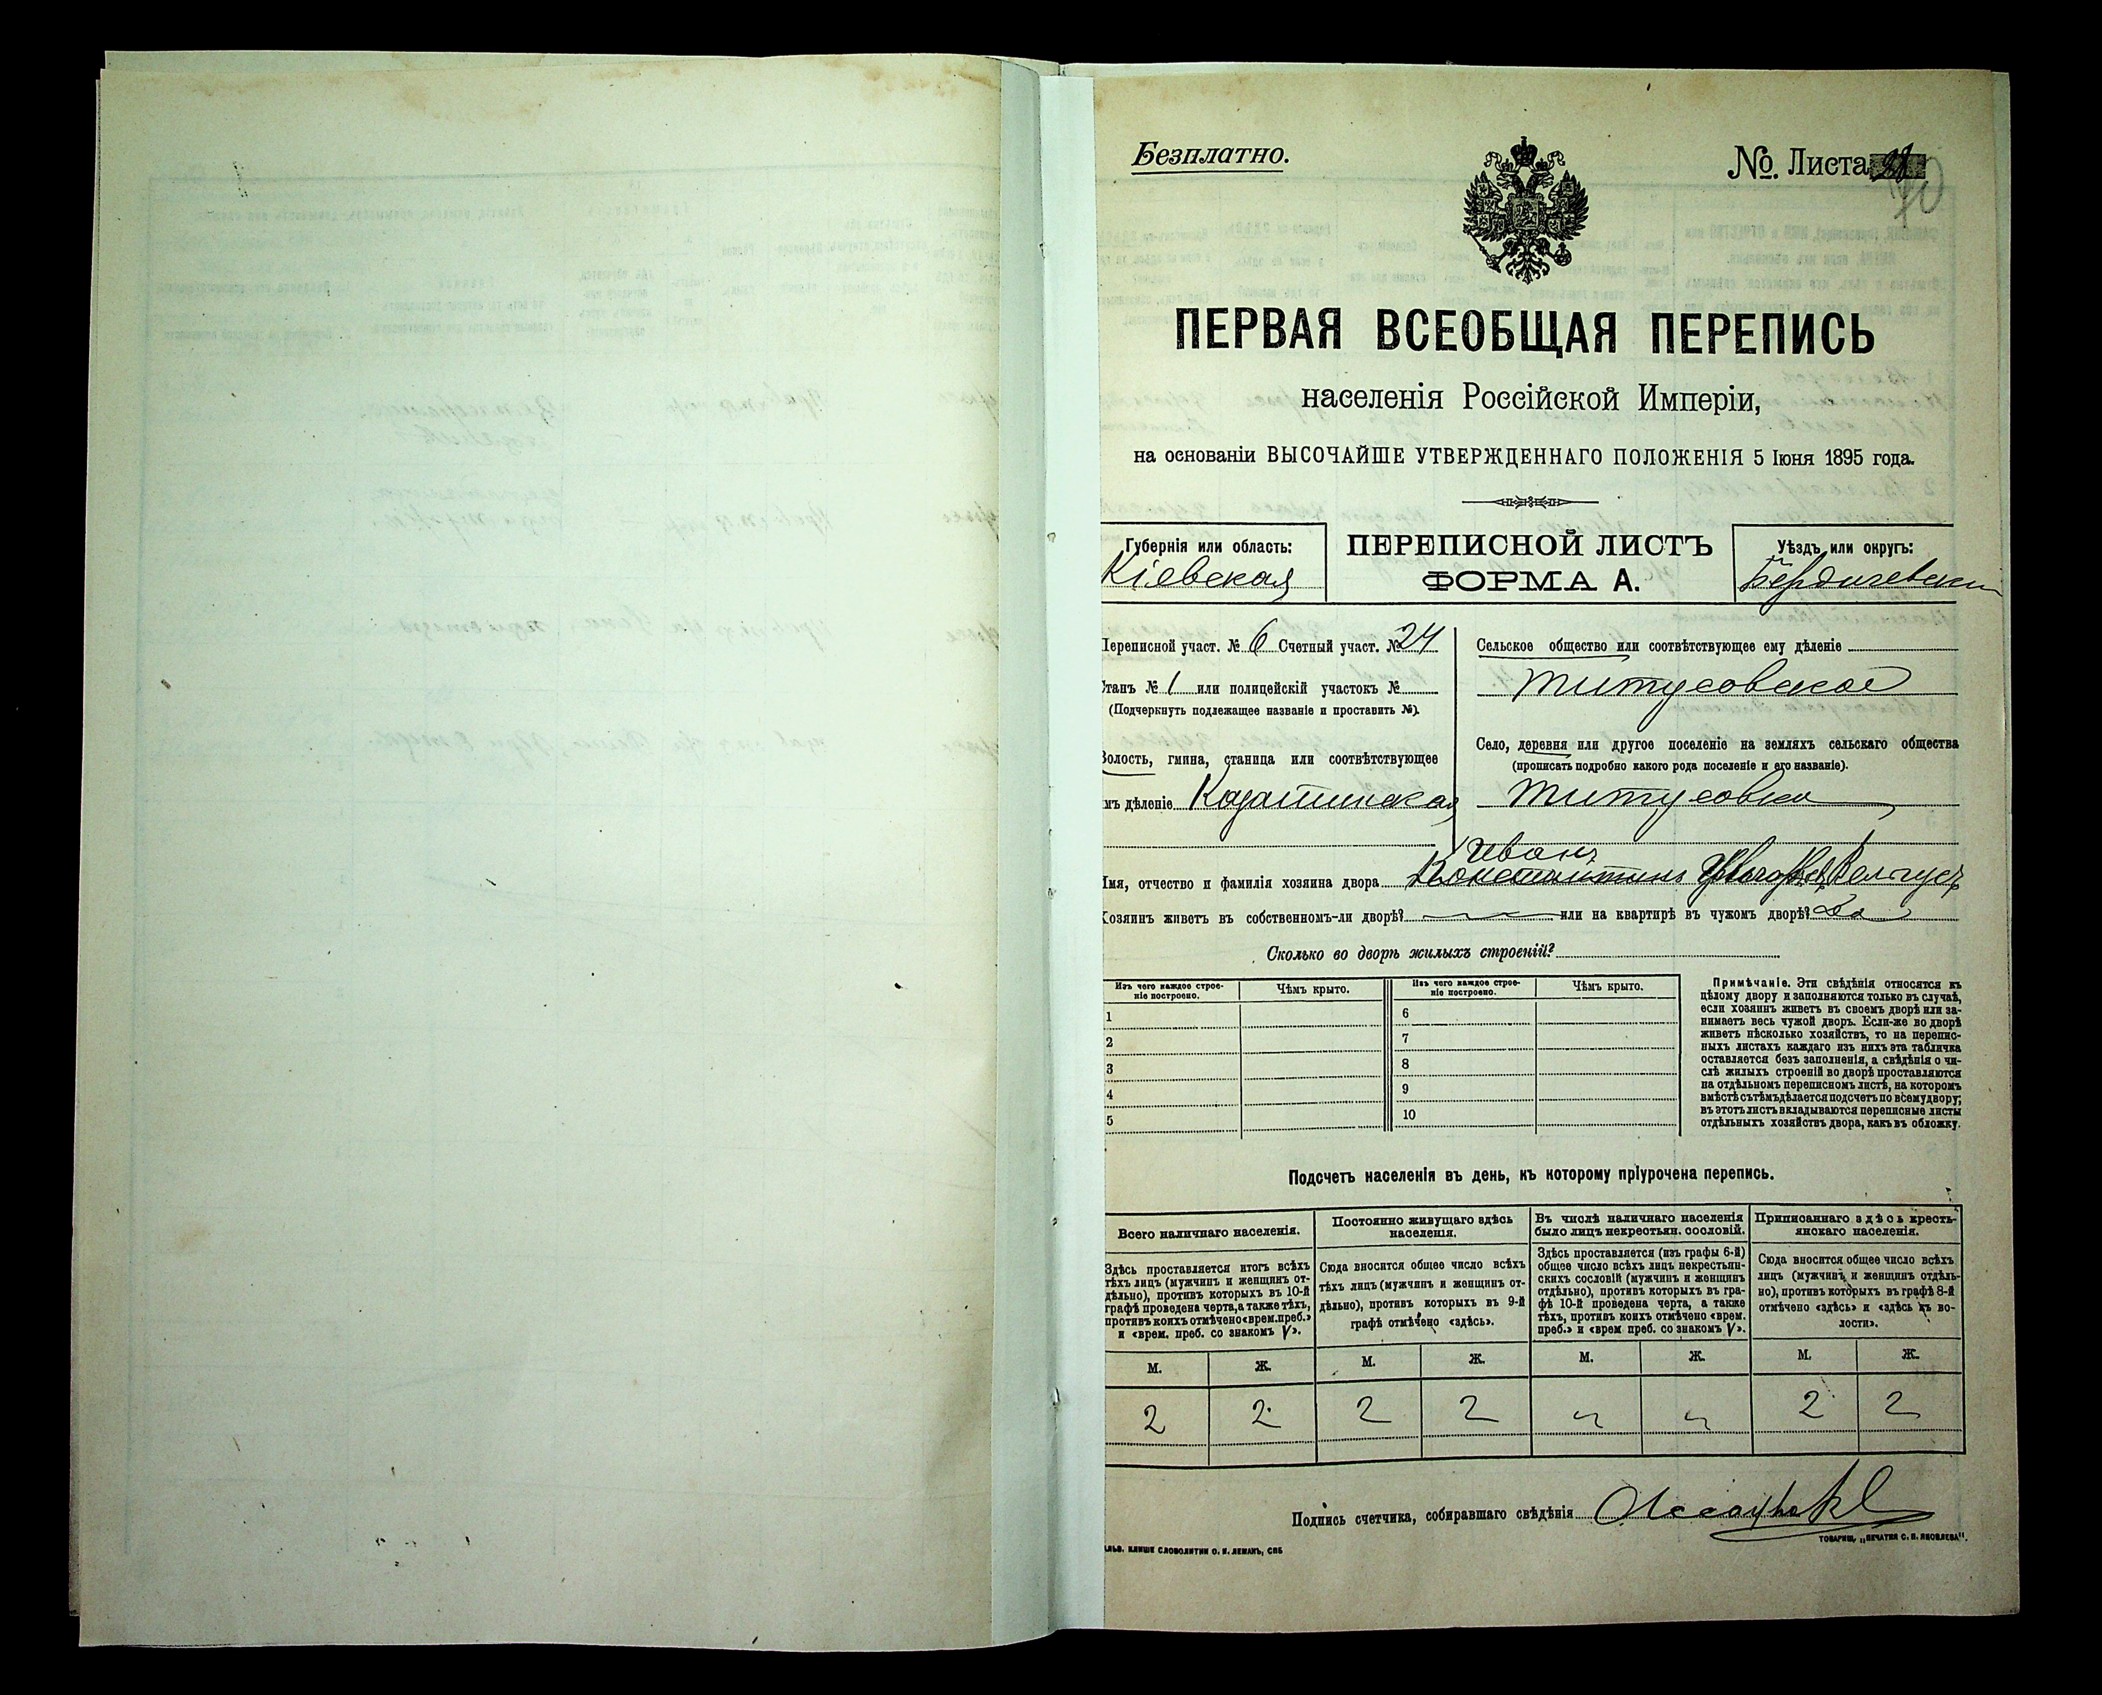 Безплатно.
№. Листа 28
70
ПЕРВАЯ ВСЕОБЩАЯ ПЕРЕПИСЬ
населенія Россійской Имперіи,
на основаніи ВЫСОЧАЙШЕ УТВЕРЖДЕННАГО ПОЛОЖЕНІЯ 5 Іюня 1895 года.
Губернія или область:
Кіевская
ПЕРЕПИСНОЙ ЛИСТЪ
ФОРМА А.
Уѣздъ или округъ:
Бердичевскій
Переписной участ. № 6 Счетный участ. № 24
Станъ № 1 или полицейскій участокъ №
(Подчеркнуть подлежащее названіе и проставить №).
Волость, гмина, станица или соотвѣтствующее
имъ дѣленіе Козатинская
Сельское общество или соотвѣтствующее ему дѣленіе
Титусовское
Село, деревня или другое поселеніе на земляхъ сельскаго общества
(прописать подробно какого рода поселеніе и его названіе).
Титусовка
Иванъ
Имя, отчество и фамилія хозяина двора Константинъ
Хозяинъ живетъ въ собственномъ-ли дворѣ? или на квартирѣ въ чужомъ дворѣ? Да
Сколько во дворѣ жилыхъ строеній?
Изъ чего каждое строе-
ніе построено.
Чѣмъ крыто.
Изъ чего каждое строе-
ніе построено.
Чѣмъ крыто.
1 6
2 7
3 8
4 9
5 10
Примѣчаніе. Эти свѣдѣнія относятся къ
цѣлому двору и заполняются только въ случаѣ,
если хозяинъ живетъ въ своемъ дворѣ или за-
нимаетъ весь чужой дворъ. Если-же во дворѣ
живетъ нѣсколько хозяйствъ, то на перепис-
ныхъ листахъ каждаго изъ нихъ эта табличка
оставляется безъ заполненія, а свѣдѣнія о чи-
слѣ жилыхъ строеній во дворѣ проставляются
на отдѣльномъ переписномъ листѣ, на которомъ
вмѣстѣ съ тѣмъ дѣлается подсчетъ по всему двору;
въ этотъ листъ вкладываются переписные листы
отдѣльныхъ хозяйствъ двора, какъ въ обложку.
Подсчетъ населенія въ день, къ которому пріурочена перепись.
Всего наличнаго населенія.
Здѣсь проставляется итогъ всѣхъ
тѣхъ лицъ (мужчинъ и женщинъ от-
дѣльно), противъ которыхъ въ 10-й
графѣ проведена черта, а также тѣхъ,
противъ коихъ отмѣчено «врем. преб.»
и «врем. преб. со знакомъ V».
Постоянно живущаго здѣсь
населенія.
Сюда вносится общее число всѣхъ
тѣхъ лицъ (мужчинъ и женщинъ от-
дѣльно), противъ которыхъ въ 9-й
графѣ отмѣчено «здѣсь».
Въ числѣ наличнаго населенія
было лицъ некрестьян. сословій.
Здѣсь проставляется (изъ графы 6-й)
общее число всѣхъ лицъ некрестьян-
скихъ сословій (мужчинъ и женщинъ
отдѣльно), противъ которыхъ въ гра-
фѣ 10-й проведена черта, а также
тѣхъ, противъ коихъ отмѣчено «врем.
преб.» и «врем преб. со знакомъ V».
Приписаннаго здѣсь кресть-
янскаго населенія.
Сюда вносится общее число всѣхъ
лицъ (мужчинъ и женщинъ отдѣль-
но), противъ которыхъ въ графѣ 8-й
отмѣчено «здѣсь» и «здѣсь въ во-
лости».
М. Ж. М. Ж. М. Ж. М. Ж.
2 2 2 2 „ „ 2 2
Подпись счетчика, собиравшаго свѣдѣнія
КЛИШЕ СЛОВОЛИТНИ О. И. ЛЕМАНЪ, СПБ
ТОВАРИЩ. „ПЕЧАТНЯ С. П. ЯКОВЛЕВА".